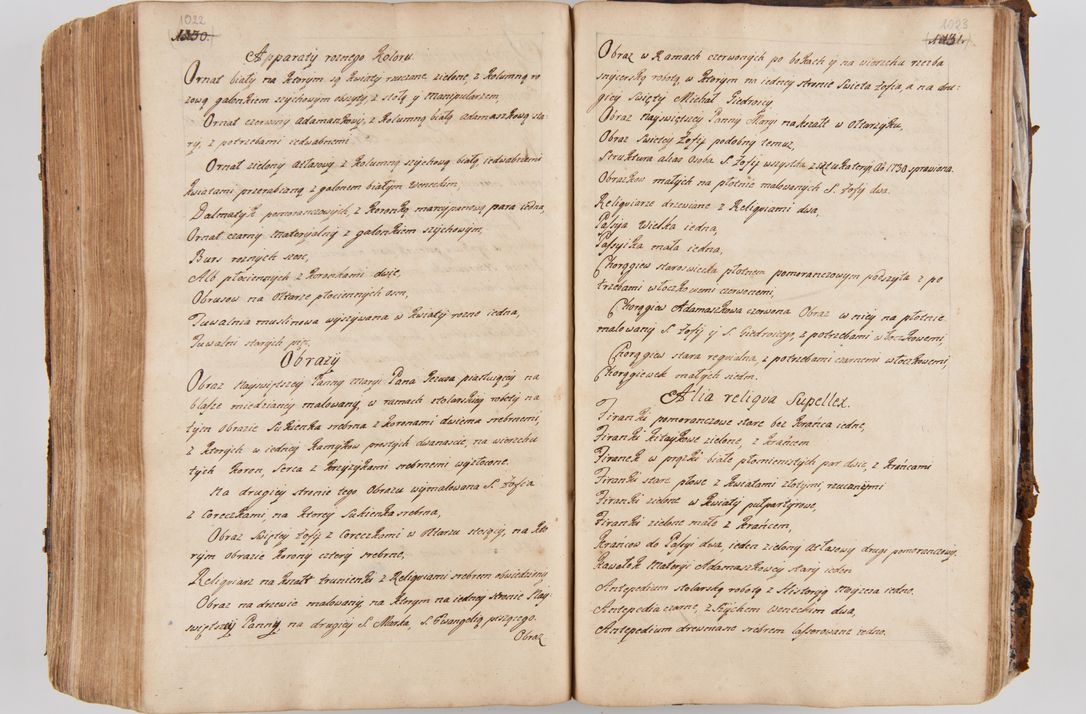 1022
1030.
Apparaty roznego Koloru
Ornat biały na ktorym są kwiaty rzucane, zielone, z kolumną ro
zową galonkiem szychowym obszyty, z stołą y manipularzem,
Ornat czerwony adamaszkowy, z kolumną białą adamaszkową sta-
ry, z potrzebami iedwabnemi
Ornat zielony atłasowy z kolumną szychową białą iedwabnemi
kwiatami przerabianą z galonem białym weneckim,
Dalmatyk pomaranczowych, z koronką marcypanową para iedna,
Ornat czarny materyalny z galonkiem szychowym,
Burs roznych szesc,
Alb płociennych z koronkami dwie,
Obrusow na ołtarze płociennych osm,
Tuwalnia muslinowa wyszywana w kwiaty rozne iedna,
Tuwalni starych pięc,
Obrazy
Obraz Nayswiętszey Panny Maryi Pana Jezusa piastuiącey na
blasze miedzianey malowany, w ramach stolarskiey roboty na
tym obrazie Sukienka srebrna z koronami dwiema srebrnemi,
z ktorych w iedney kamykow prostych dwanascie, na wierzchu
tych koron, serca z krzyzykami srebrnemi wyzłocone.
Na drugiey stronie tego Obrazu wymalowana S. Zofia
z Coreczkami, na ktorey Sukienka srebrna,
Obraz Swiętey Zofij z Coreczkami w Ołtarzu stoiący, na kto
rym obrazie korony cztery srebrne,
Religuiarz na kształt trunienki z Religuiami srebrem obwiedziony
Obraz na drzewie malowany, na ktorym na iedney stronie Nay
swiętszey Panny na drugiey S. Marka, S. Ewangelią piszącego.
Obraz
1023
1031.
Obraz w Ramach czerwonych po bokach y na wierzchu rzezba
snycerską robotą, w ktorym na iedney stronie Swieta Zofia, a na dru-
giey Swięty Michał Giedroicy,
Obraz Nayswiętszey Panny Maryi na kształt w Ołtarzyku,
Obraz Swietey Zofij podobny temuz,
Struktura alias Osoba S. Zofij wszystka z sztukateryą Ao. 1730 sprawiona.
Obrazkow małych na płotnie malowanych S. Zofij dwa.
Religuiarze drzewiane z Religuiami dwa,
Pafsyia Wielka iedna,
Pafsyika mała iedna,
Chorągiew staroswiecka płotnem pomaranczowym podszyta z po
trzebami włoczkowemi czerwonemi,
Chorągiew Adamaszkowa czerwona Obraz w niey na płotnie
malowany S. Zofij y S. Giedroicego, z potrzebami włoczkowemi,
Chorągiew stara requialna, z potrzebami czarnemi włoczkowemi,
Chorągiewek małych siedm.
Alia reliqva Supellex.
Firanki pomaranczowe stare bez krańca iedne,
Firanki kitaykowe zielone, z krańcem
Firanek w prążki białe płomienistych par dwie, z krańcami
Firanki stare płowe z kwiatami złotymi, rzucanymi
Firanki zielone w kwiaty pułpartyrowe,
Firanki zielone małe z krańcem,
Krańcow do Pafsyi dwa, ieden zielony atłasowy drugi pomaranczowy.
Kawałek materyi Adamaszkowey stary ieden
Antepedium stolarską robotą z Historyą iedno.
Antepedia czarne, z szychem weneckim dwa,
Antepedium drewniane srebrem laserowane iedno.